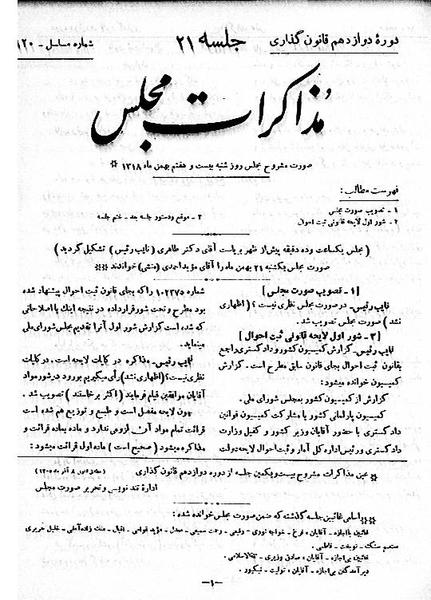 دورهٔ دوازدهم قانون گذاری
جلسه ۲۱
شماره مسلسل - ۱۲۰
مذاکرات مجلس
صورت مشروح مجلس روز شنبه بیست و هفتم بهمن ماه ۱۳۱۸ *
فهرست مطالب:
۱ - تصویب صورت مجلس
۲ - شور اول لایحه قانونی ثبت احوال
۳ - موقع و دستور جلسه بعد - ختم جلسه
( مجلس یکساعت و ده دقیقه پیش از ظهر بریاست آقای دکتر طاهری (نایب رئیس) تشکیل گردید )
صورت مجلس یکشنبه ۲۱ بهمن ماه را آقای مؤید احمدی (منشی) خواندند
[ ۱ - تصویب صورت مجلس ]
نایب رئیس - در صورت مجلس نظری نیست؟ ( اظهاری
نشد ) صورت مجلس تصویب شد.
[ ۲ - شور اول لایحه قانونی ثبت احوال ]
نایب رئیس - گزارش کمیسیون کشور و دادگستری راجع
بقانون ثبت احوال بجای قانون سابق مطرح است. گزارش
کمیسیون خوانده میشود:
گزارش از کمیسیون کشور بمجلس شورای ملی.
کمیسیون پارلمانی کشور با مشارکت کمیسیون قوانین
دادگستری با حضور آقایان وزیر کشور و کفیل وزارت
دادگستری و رئیس اداره کل آمار و ثبت احوال لایحه دولت
شماره ۱۰۲۳۷۵ را که بجای قانون ثبت احوال پیشنهاد شده
بود مطرح و تحت شور قرار داده در نتیجه اینك با اصلاحاتی
که شده است گزارش شور اول آنرا تقدیم مجلس شورای ملی
مینماید.
نایب رئیس - مذاکره در کلیات لایحه است. در کلیات
نظری نیست؟ (اظهاری نشد) رأی میگیریم بورود در شور مواد
آقایان موافقین قیام فرمایند ( اکثر برخاستند ) تصویب شد.
چون لایحه مفصل است و طبع و توزیع هم شده است
قرائت تمام مواد آن لزومی ندارد و ماده بماده قرائت و
مذاکره میشود ( صحیح است ) ماده اول قرائت میشود:
عین مذاکرات مشروح بیست و یکمین جلسه از دوره دوازدهم قانون گذاری
اداره تند نویسی و تحریر صورت مجلس
اسامی غائبین جلسه گذشته که ضمن صورت مجلس خوانده شده:
غائبین با اجازه - آقایان: فرخ - خواجه نوری - رفیعی - رحمت سمیعی - معدل - مؤید قوامی - اقبال
فاطمی.
غائبین بی اجازه - آقایان: صادق وزیری - تقة‌الاسلامی.
دیر آمدگان بی اجازه - آقایان: تولیت - نیکپور.
-۱-